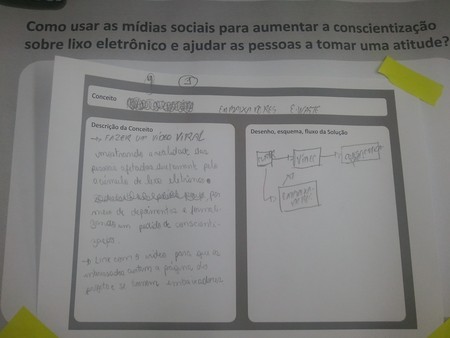 Como usar as mídias sociais para aumentar a conscientização
sobre lixo eletrônico e ajudar as pessoas a tomar uma atitude?
9 3
Conceito EMBAIXADORES E-WASTE
Descrição da Conceito
→ FAZER um vídeo VIRAL
mostrando a realidade das
pessoas afetadas diretamente pelo
acúmulo de lixo eletrônico
por
meio de depoimentos e
um pedido de
→ Link com o vídeo para que os
interessados visitem a página do
projeto e se tornem embaixadores
Desenho, esquema, fluxo da Solução
VIRAL